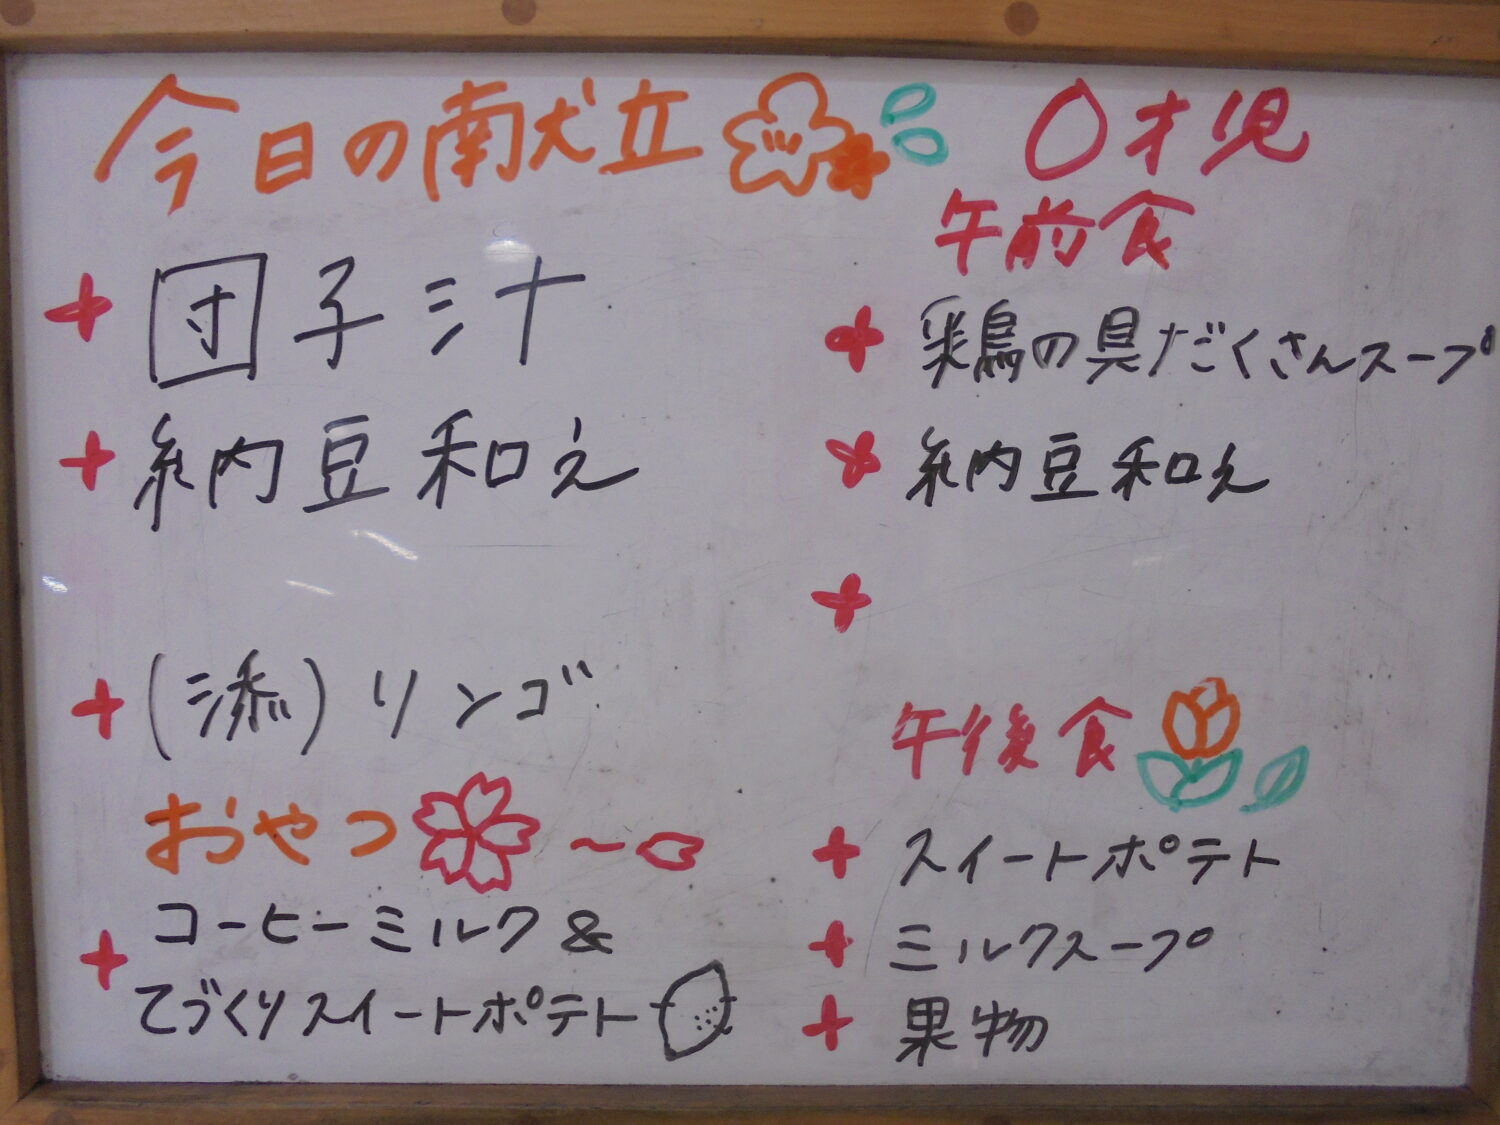 今日の献立
団子汁
納豆和え
(添)リンゴ
おやつ
コーヒーミルク&
てづくりスイートポテト
0才児
午前食
鶏の具だくさんスープ
納豆和え
午後食
スイートポテト
ミルクスープ
果物